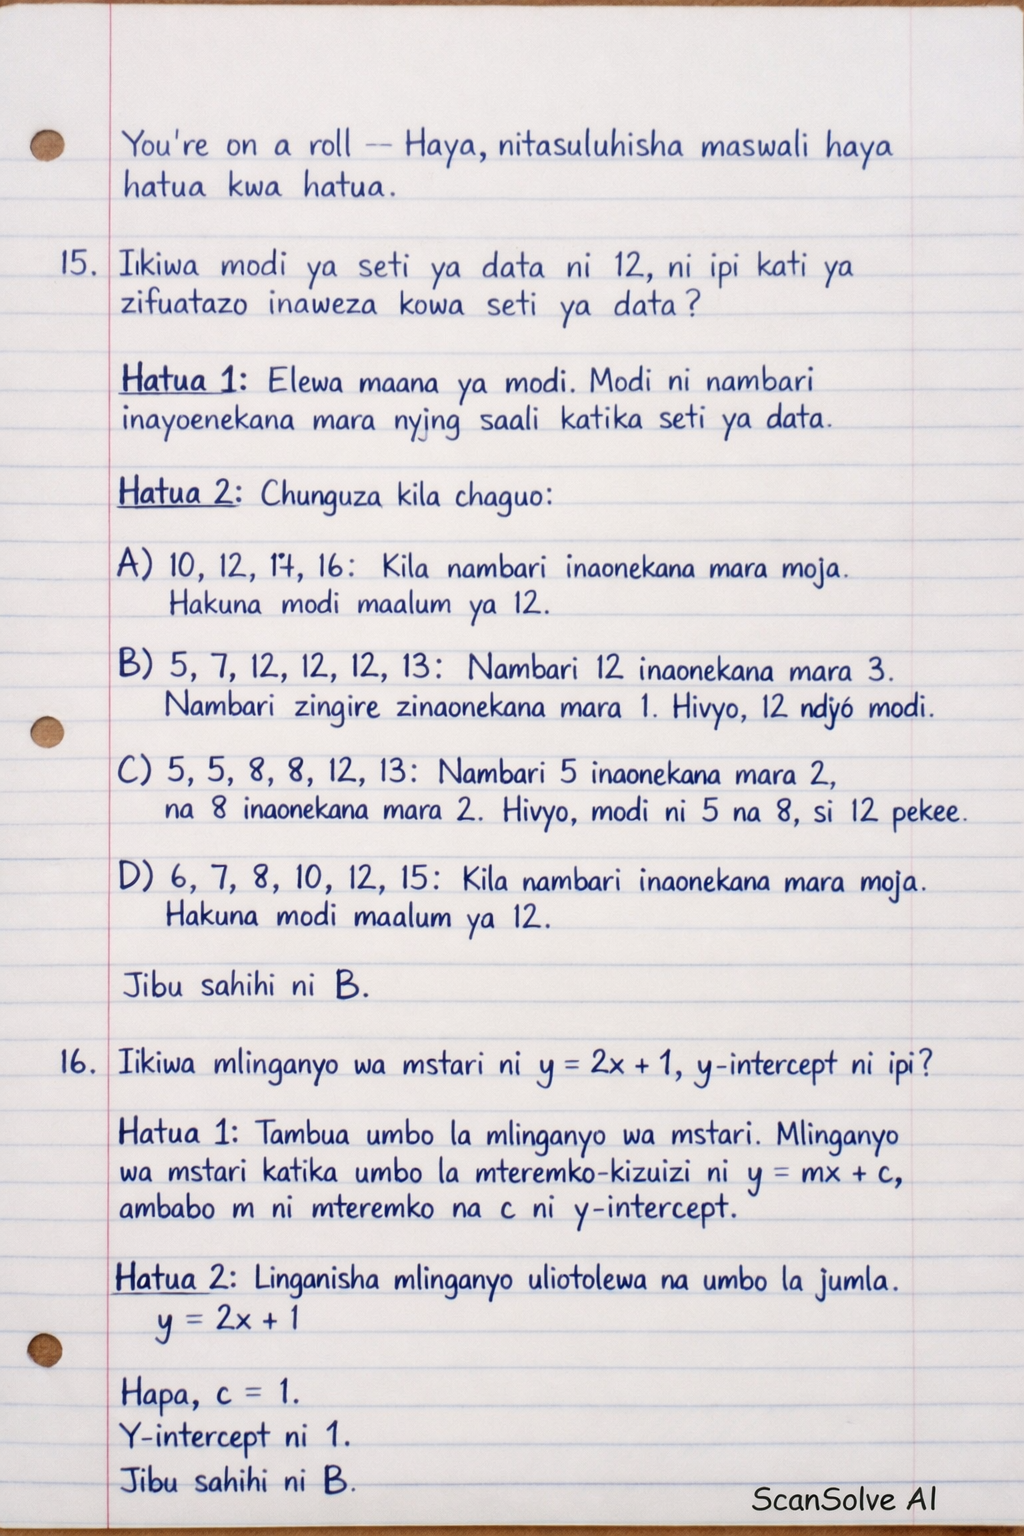 You're on a roll — Haya, nitasuluhisha maswali haya
hatua kwa hatua.
15. Iikiwa modi ya seti ya data ni 12, ni ipi kati ya
zifuatazo inaweza kowa seti ya data?
Hatua 1: Elewa maana ya modi. Modi ni nambari
inayoenekana mara nyjng saali katika seti ya data.
Hatua 2: Chunguza kila chaguo:
A) 10, 12, 14, 16: Kila nambari inaonekana mara moja.
Hakuna modi maalum ya 12.
B) 5, 7, 12, 12, 12, 13: Nambari 12 inaonekana mara 3.
Nambari zingire zinaonekana mara 1. Hivyo, 12 ndyó modi.
C) 5, 5, 8, 8, 12, 13: Nambari 5 inaonekana mara 2,
na 8 inaonekana mara 2. Hivyo, modi ni 5 na 8, si 12 pekee.
D) 6, 7, 8, 10, 12, 15: Kila nambari inaonekana mara moja.
Hakuna modi maalum ya 12.
Jibu sahihi ni B.
16. Iikiwa mlinganyo wa mstari ni y = 2x + 1, y-intercept ni ipi?
Hatua 1: Tambua umbo la mlinganyo wa mstari. Mlinganyo
wa mstari katika umbo la mteremko-kizuizi ni y = mx + c,
ambabo m ni mteremko na c ni y-intercept.
Hatua 2: Linganisha mlinganyo uliotolewa na umbo la jumla.
y = 2x + 1
Hapa, c = 1.
Y-intercept ni 1.
Jibu sahihi ni B.
ScanSolve AI